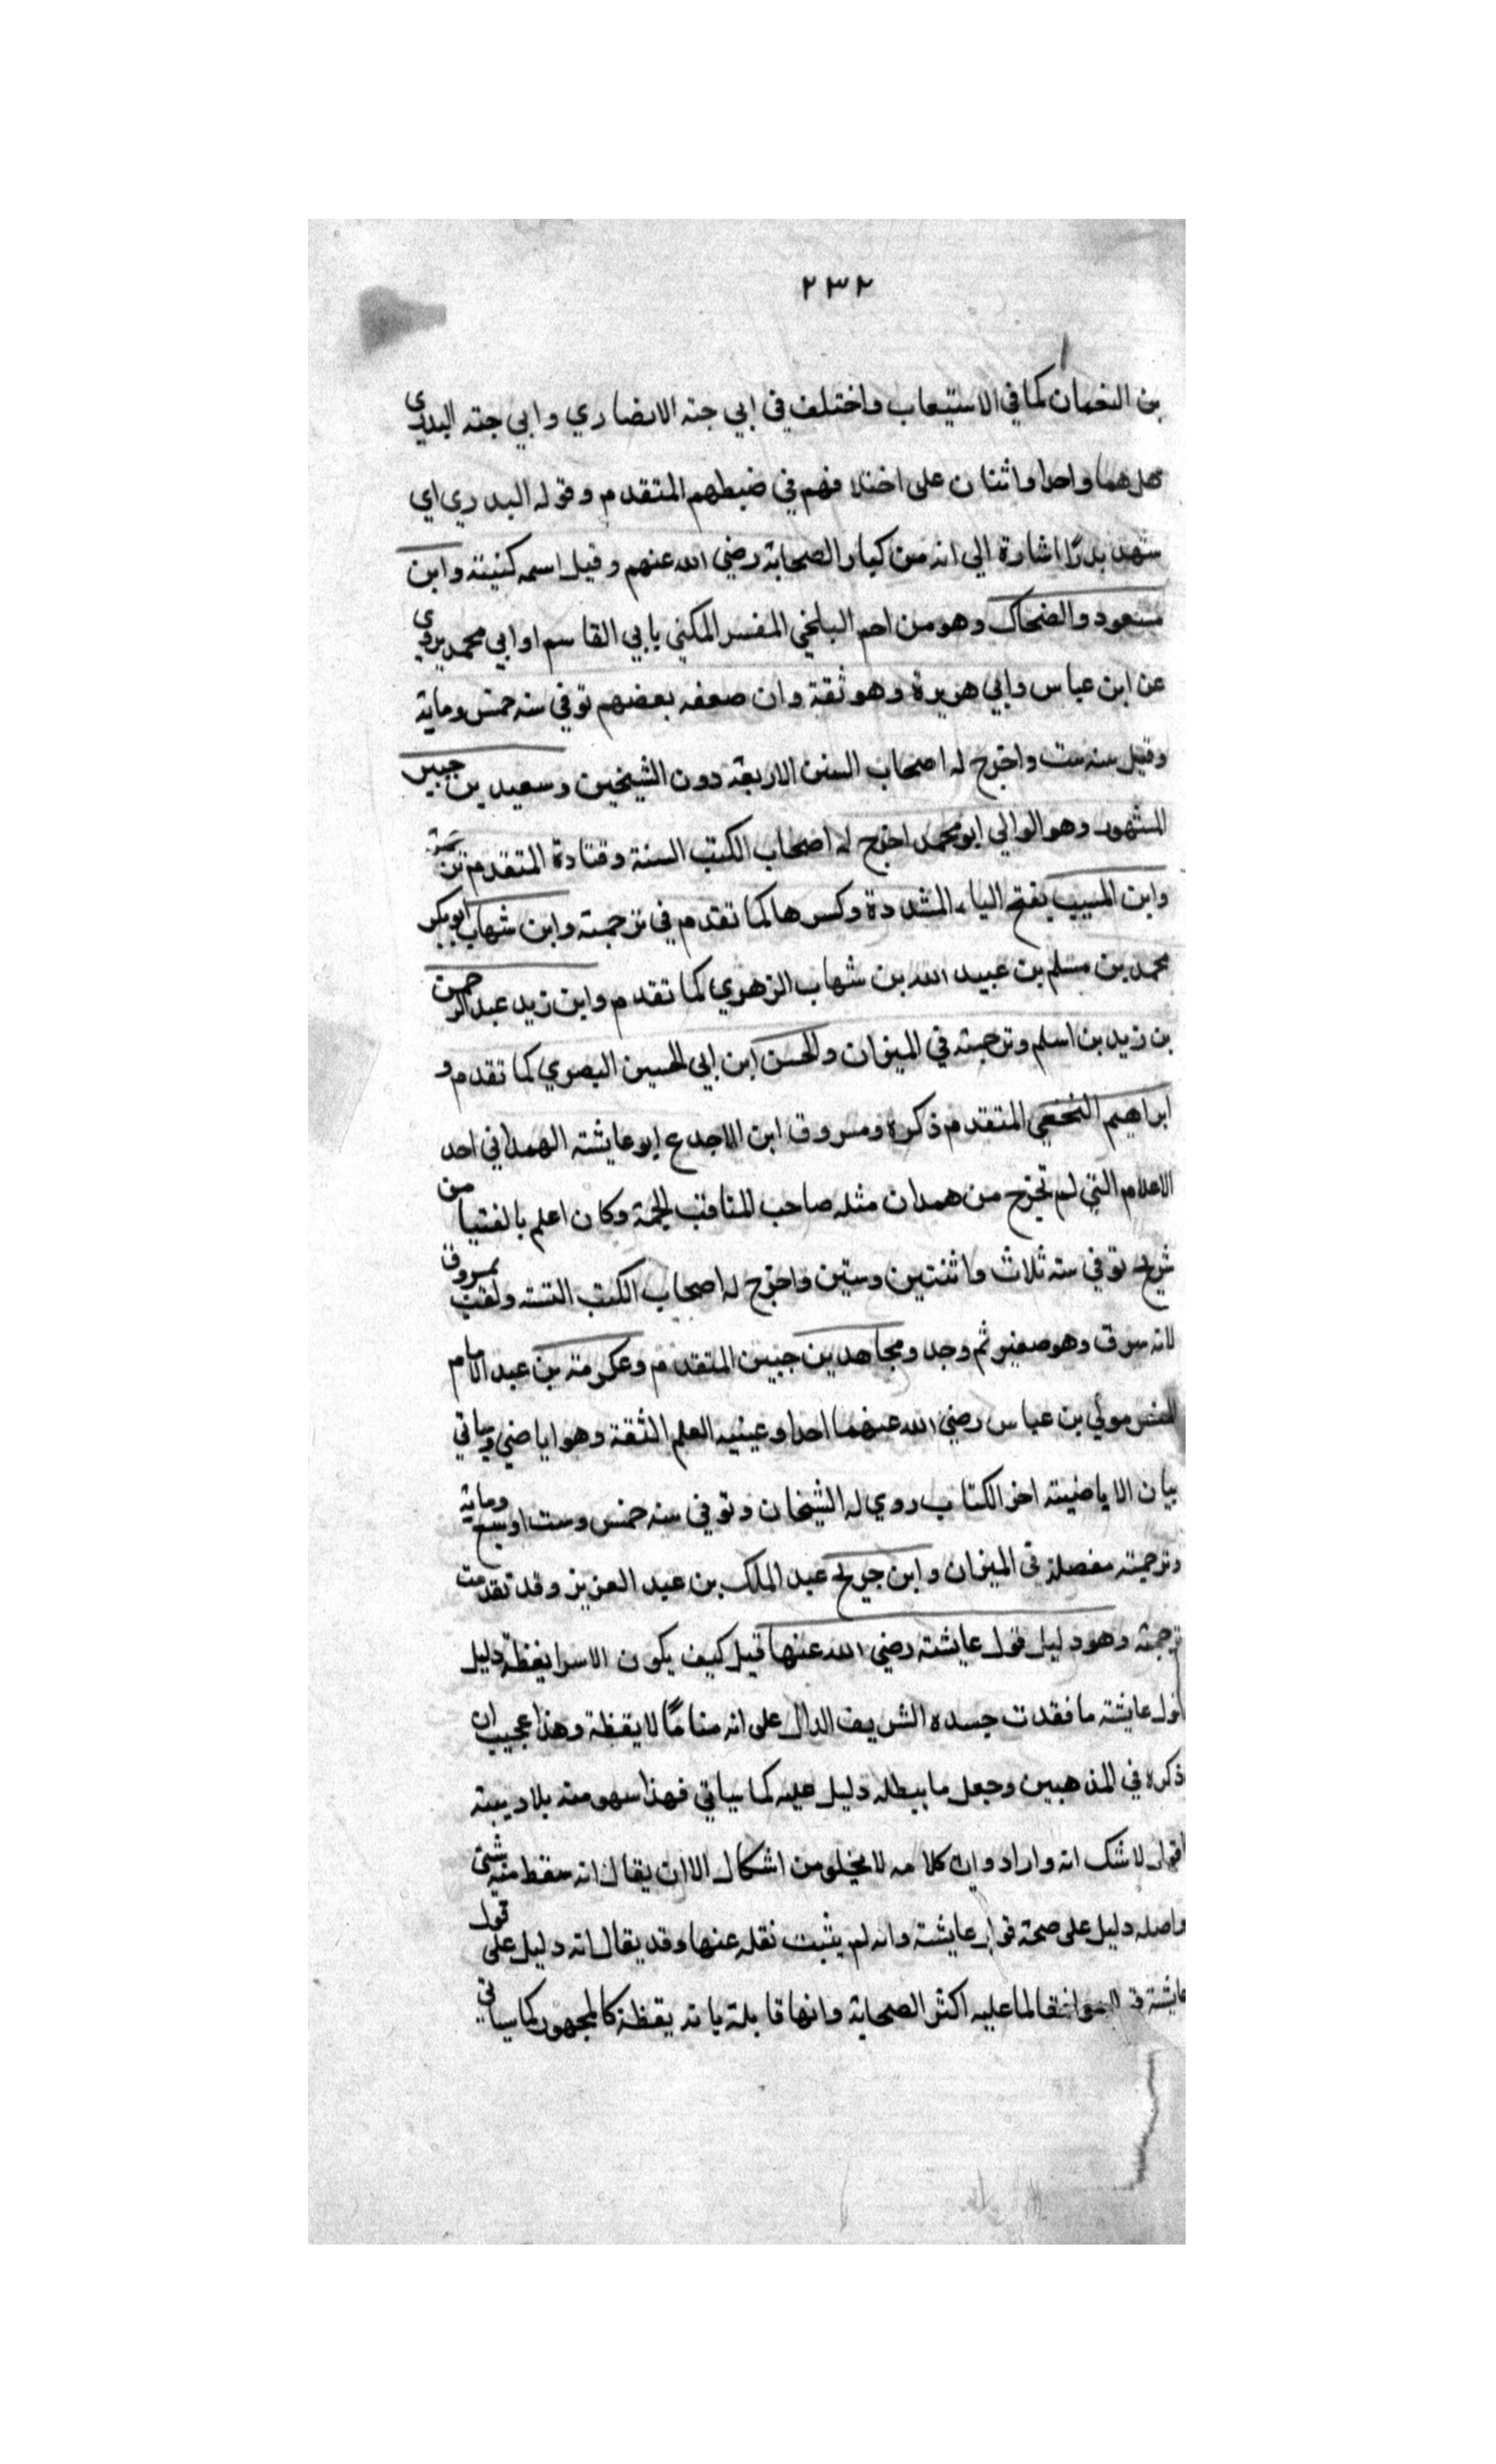 ٢٣٢
بن النعمان كما في الاستيعاب واختلف في ابي حبه الانصاري وابي حبه البدري
هل هما واحدا واثنان على اختلافهم في ضبطهم المتقدم وقوله البدري اي
شهد بدرًا اشارة الي انه من كبار الصحابة رضي الله عنهم وقيل اسمه كنيته وابن
مسعود والضحاك وهو مزاحم البلخي المفسر المكني بابي القاسم او ابي محمد يروي
عن ابن عباس وابي هريرة وهو ثقة وان ضعفه بعضهم توفي سنه خمس وماية
وقيل سنه ست واخرج له اصحاب السنن الاربعة دون الشيخين وسعيد بن جبير
المشهور وهو الوالي ابو محمد اخرج له اصحاب الكتب الستة وقتادة المتقدم
وابن المسيب بفتح الياء المشددة وكسرها كما تقدم في ترجمته وابن شهاب ابو بكر
محمد بن مسلم بن عبيد الله بن شهاب الزهري كما تقدم وابن زيد عبد الرحمن
بن زيد بن اسلم وترجمته في الميزان والحسن ابن ابي الحسين البصري كما تقدم و
ابراهيم النخعي المتقدم ذكره ومسروق ابن الاجدع ابو عايشته الهمداني احد
الاعلام التي لم تخرج من همدان مثله صاحب المناقب الجمة وكان اعلم بالفتيا من
شريح توفي سنه ثلاث واثنتين وستين واخرج له اصحاب الكتب الستة ولقب بمسروق
لانه سرق وهو صغير ثم وجد ومجاهد بن جبير المتقدم وعكرمة بن عبد الامام
المفسر مولي بن عباس رضي الله عنهما احد اوعينيه العلم الثقة وهو اباضي وياتي
بيان الاباضيته اخر الكتاب روي له الشيخان وتوفي سنه خمس وست اوسبع وماية
وترجمته مفصلة في الميزان وابن جريج عبد الملك بن عبد العزيز وقد تقدمت
ترجمته وهو دليل قول عايشته رضي الله عنها قيل كيف يكون الاسرا يقظة دليل
قول عايشته ما فقدت جسده الشريف الدال على انه منامًا لا يقظة وهذا عجيب ان
ذكره في المذهبين وجعل ما يبطله دليل عليه كما سياتي فهذا سهو منه بلا ريبته
اقول لا شك انه واراد وان كلامه لا يخلو من اشكال الا ان يقال انه سقط منه شئ
واصله دليل على صحة قول عايشته وانه لم يثبت نقله عنها وقد يقال انه دليل على قول
عايشته لما عليه اكثر الصحابة وانها قابلة بانه يقظة كالجمهور كما سياتي